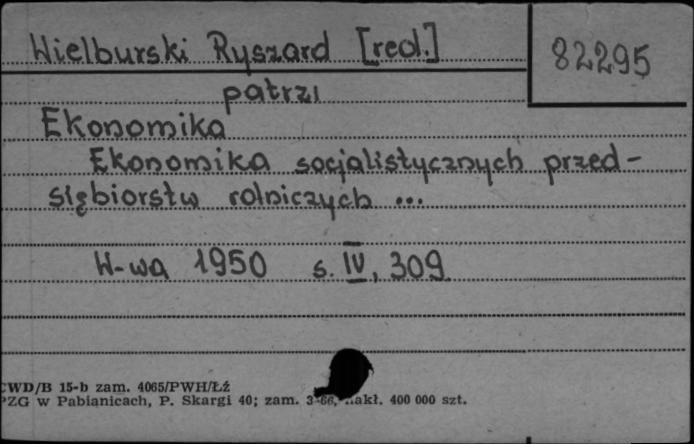 Wielburski Ryszard [red.]
82295
patrzı
Ekonomika
Ekonomika socjalistycznych przed-
siębiorstw rolniczych ...
W-wa 1950 s. IV, 309
CWD/B 15-b zam. 4065/PWH/Łź
PZG w Pabianicach, P. Skargi 40; zam. 3-66, nakł. 400 000 szt.